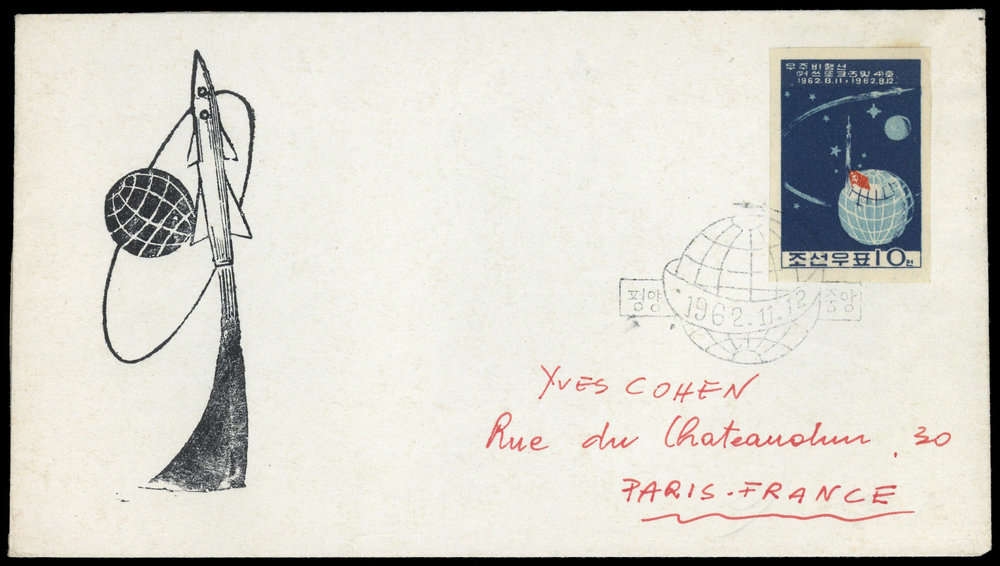 우주비행선
《보쓰또크》3 및 4호
1962.8.11 - 1962.8.12
조선우표 10 전
평양 1962.11.12 중앙
YVES COHEN
Rue du Chateaudun, 30
PARIS-FRANCE